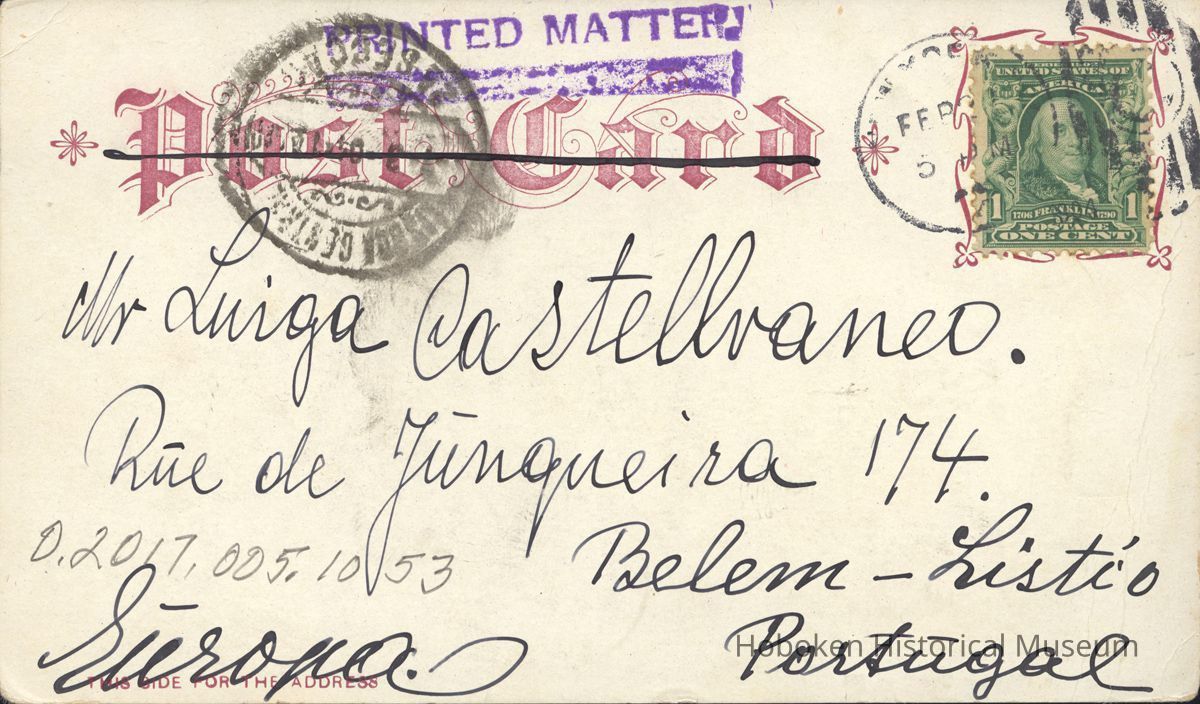 PRINTED MATTER.
Post Card
FEB
5
UNITED STATES OF
AMERICA
1 1706 FRANKLIN 1790 1
POSTAGE
ONE CENT
Mr Luiga Castellvaneo.
Rūe de Jūnqueira 174.
0.2017.005.10 53
Belem - Listío
Eūropa.
Portūgal
Hoboken Historical Museum
THIS SIDE FOR THE ADDRESS